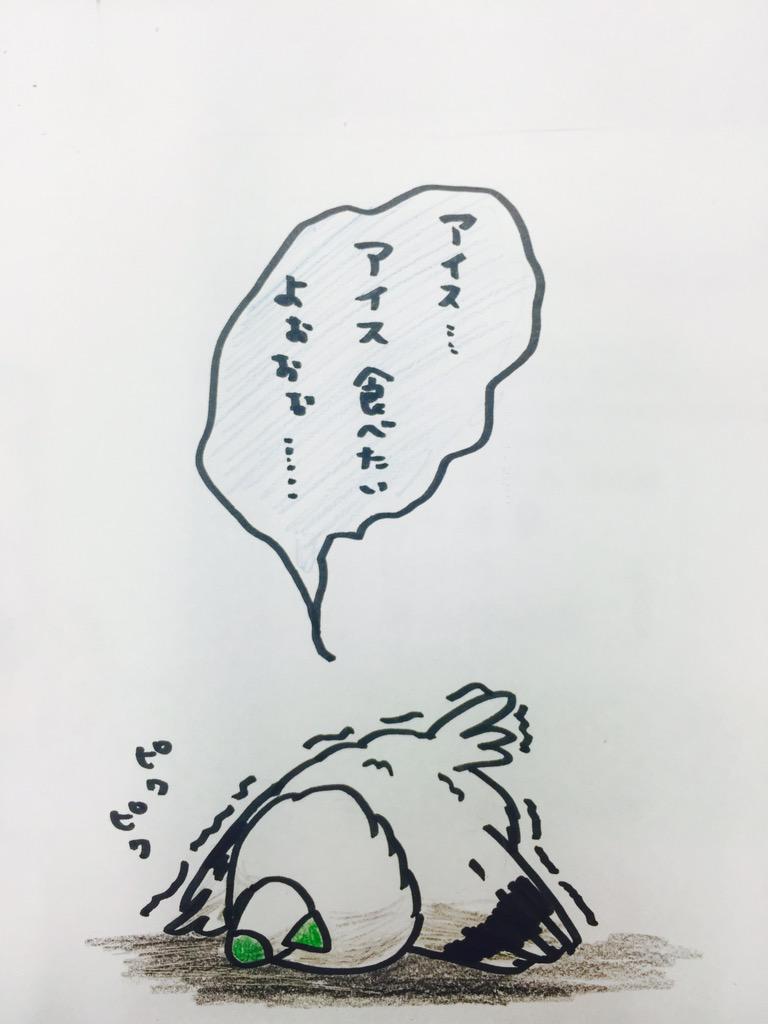 アイス…
アイス 食べたい
よぉぉぉ……
ピクピク